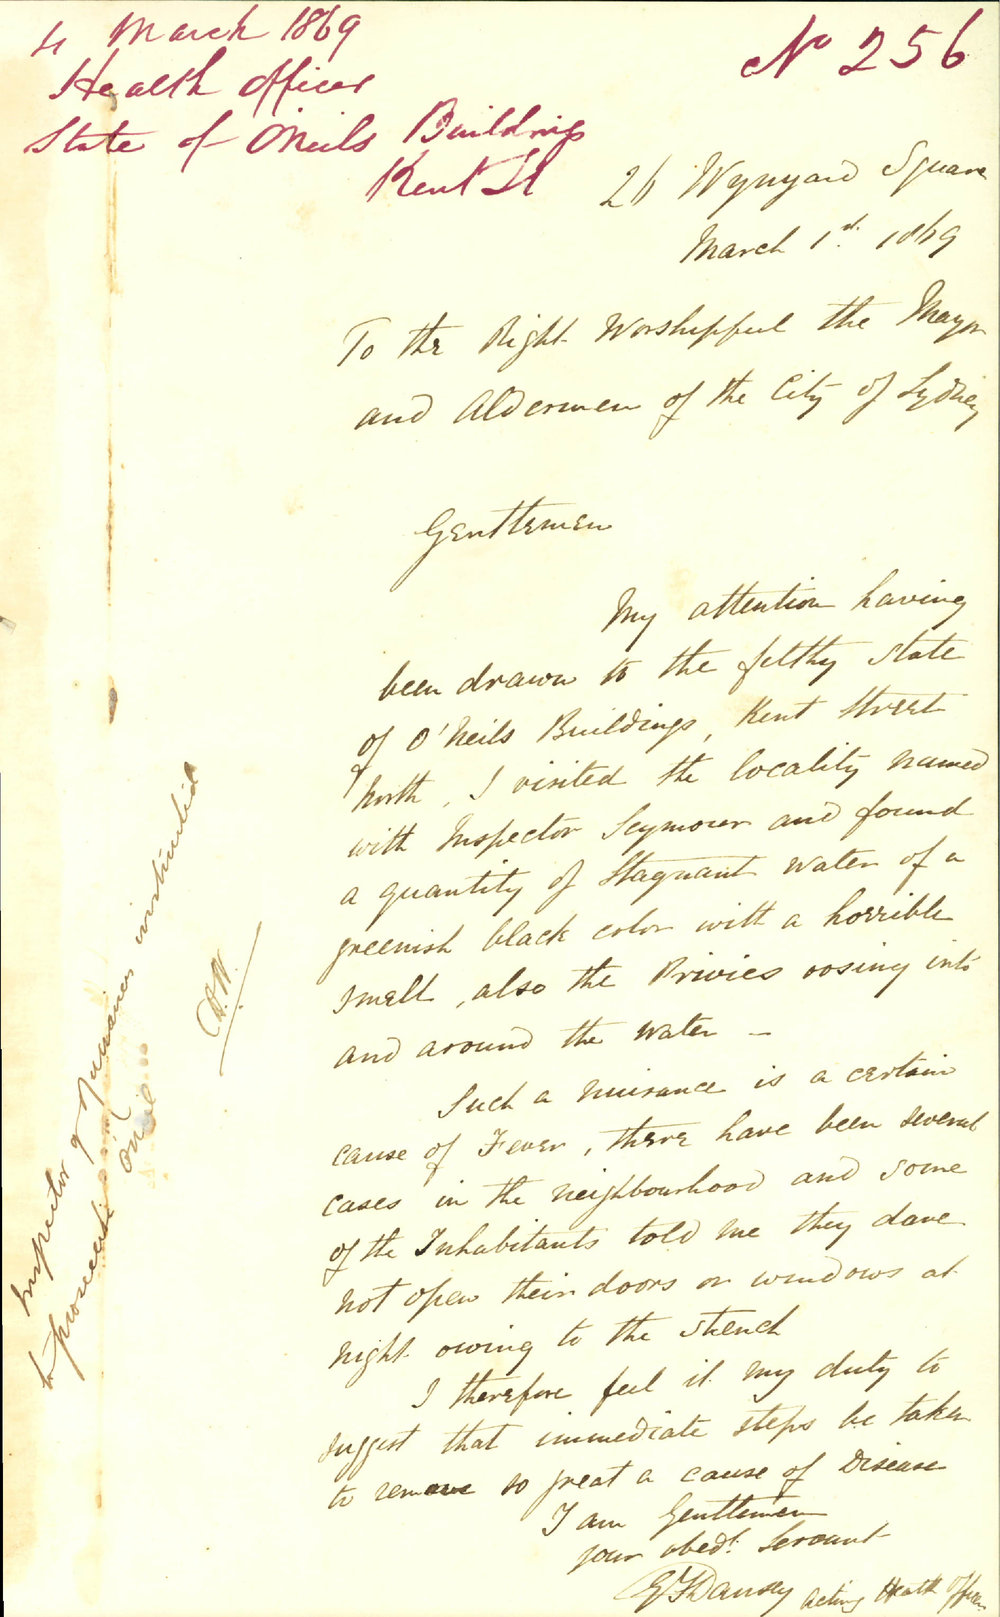 4 March 1869
Health Officer
State of O'Neils Buildings
Kent St
No 256
26 Wynyard Square
March 1st. 1869
To the Right Worshipful the Mayor
and Aldermen of the City of Sydney
Gentlemen
My attention having
been drawn to the filthy state
of O'Neils Buildings, Kent Street
North, I visited the locality named
with Inspector Seymour and found
a quantity of Stagnant water of a
greenish black color with a horrible
smell, also the Privies oosing into
and around the water —
Such a nuisance is a certain
cause of Fever, there have been several
cases in the neighbourhood and some
of the Inhabitants told me they dare
not open their doors or windows at
night owing to the stench
I therefore feel it my duty to
suggest that immediate steps be taken
to remove so great a cause of Disease
I am Gentlemen
your obedt. Servant
G F Dansey Acting Health Officer
Inspector of Nuisances instructed
to prosecute O'Neil